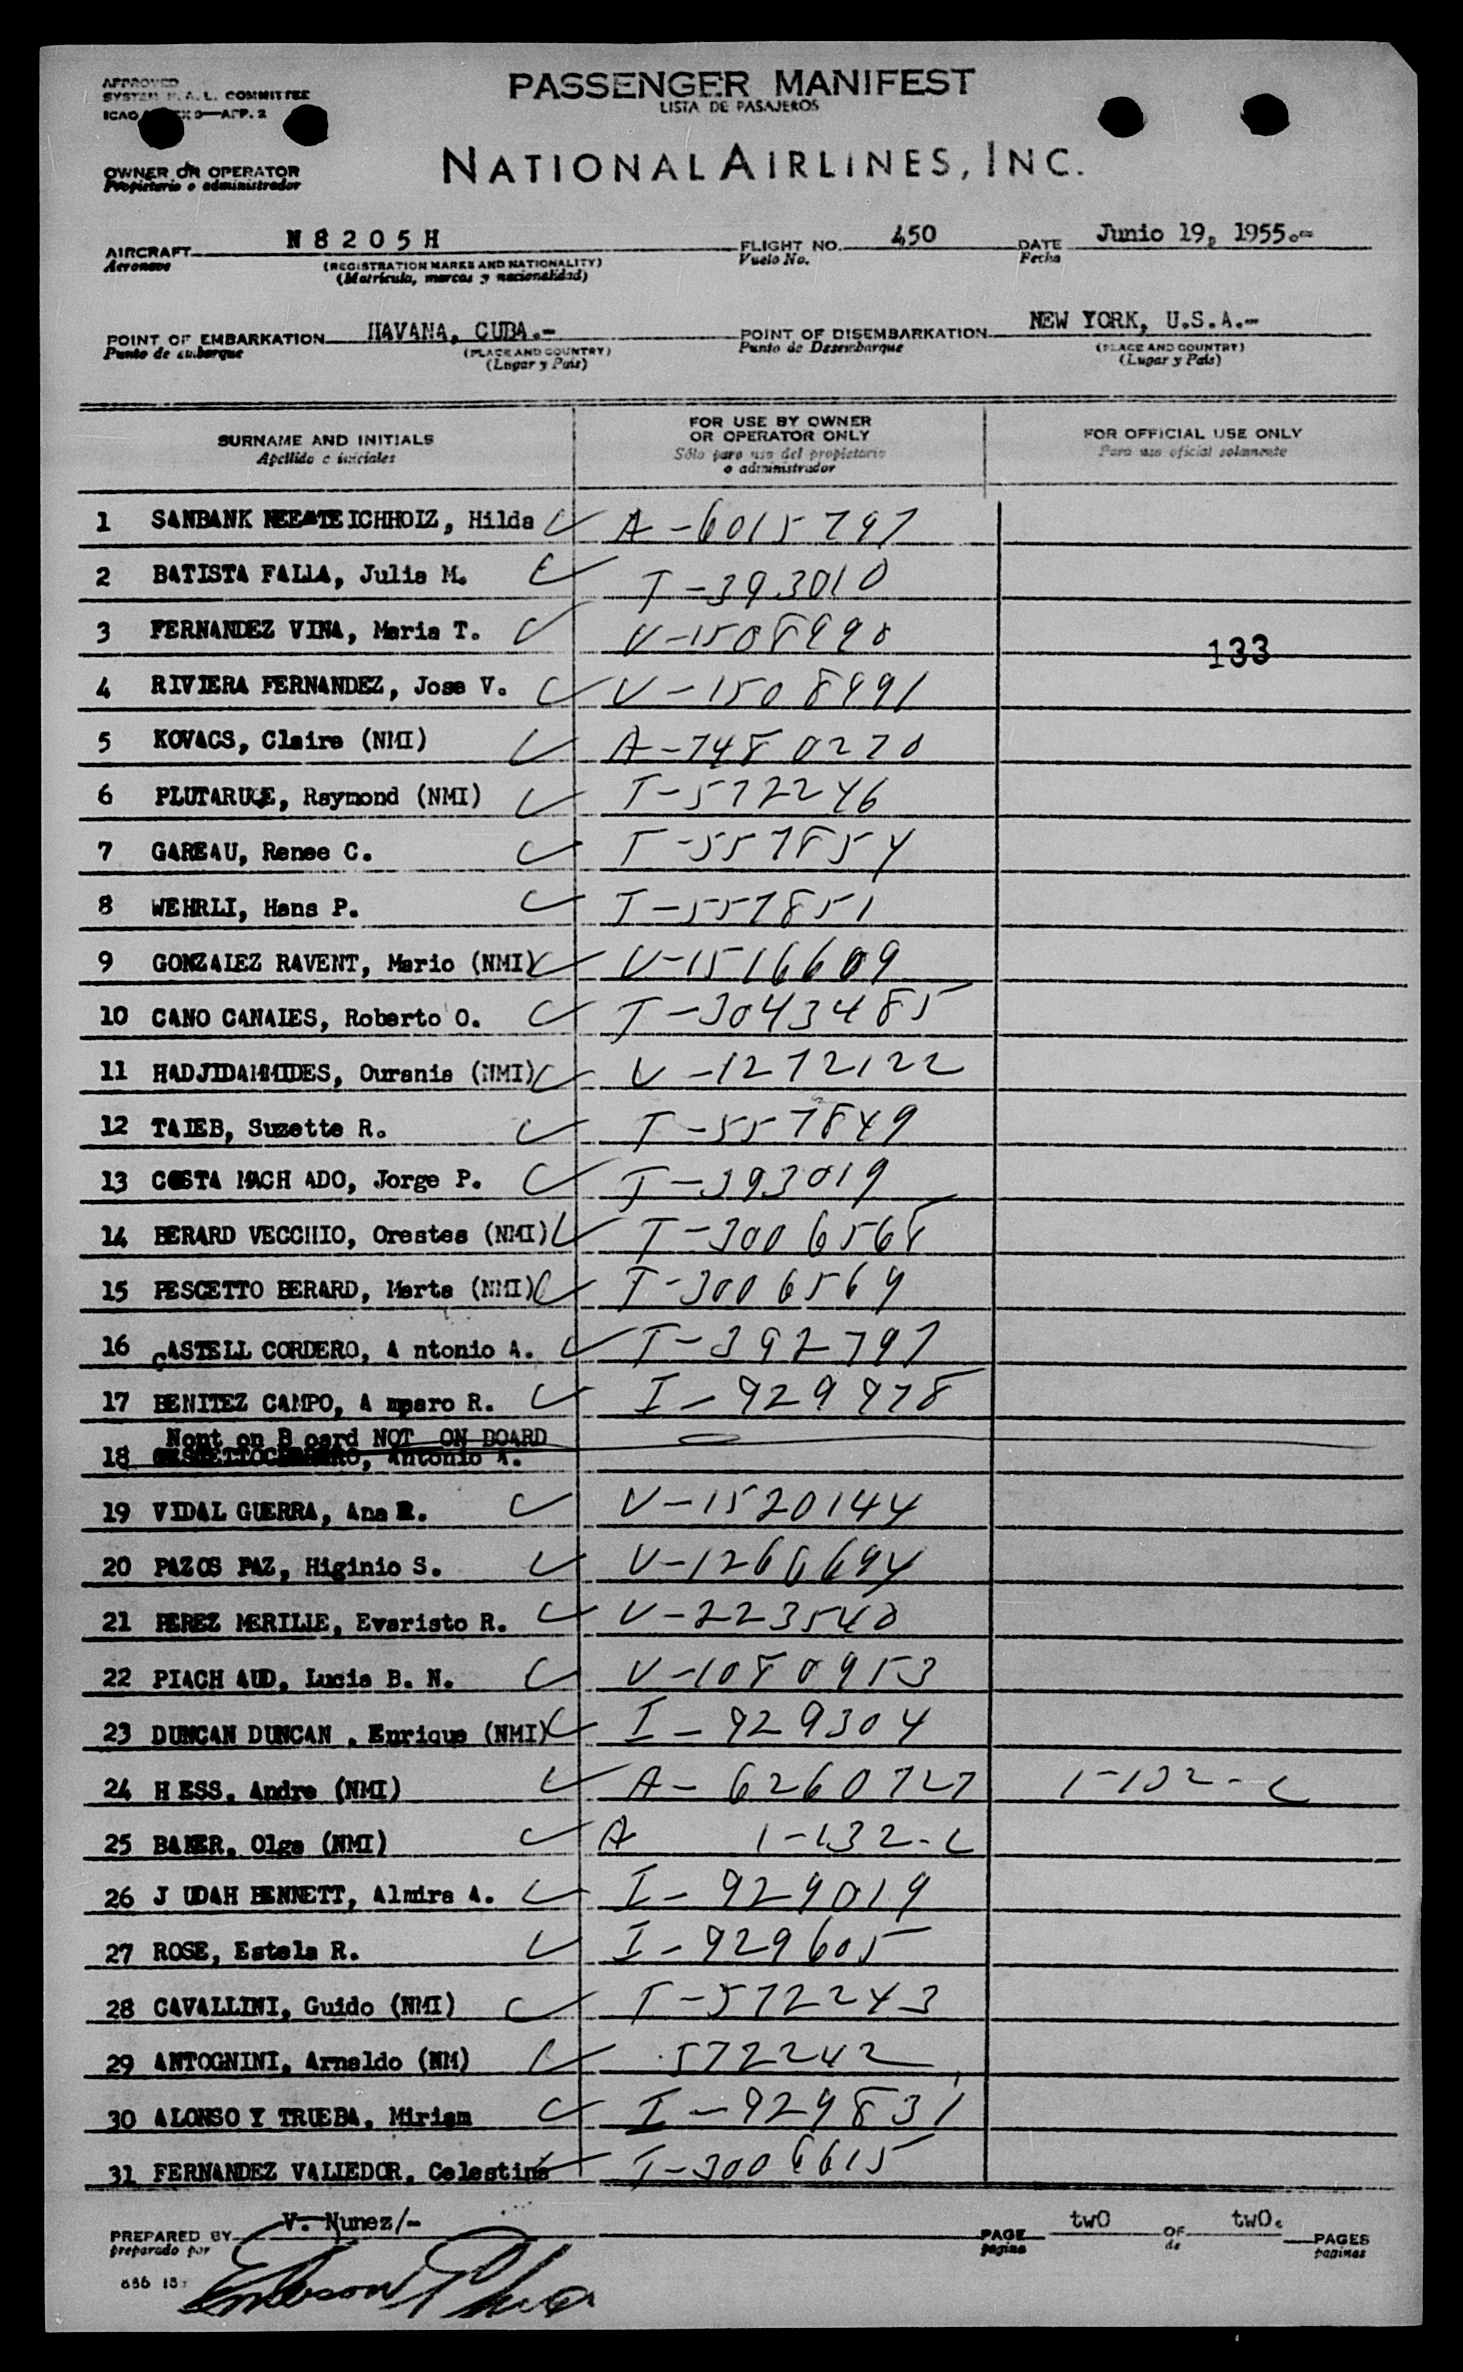 APPROVED
SYSTEM F.A.L. COMMITTEE
ICAO 9—APP. 2
PASSENGER MANIFEST
LISTA DE PASAJEROS
OWNER OR OPERATOR
Propietario o administrador
NATIONAL AIRLINES, INC.
AIRCRAFT N8205H FLIGHT NO. 450 DATE Junio 19, 1955.-
Aeronave (REGISTRATION MARKS AND NATIONALITY) Vuelo No. Fecha
(Matrícula, marcas y nacionalidad)
POINT OF EMBARKATION HAVANA, CUBA.- POINT OF DISEMBARKATION NEW YORK, U.S.A.-
Punto de embarque (PLACE AND COUNTRY) Punto de Desembarque (PLACE AND COUNTRY)
(Lugar y País) (Lugar y País)
SURNAME AND INITIALS FOR USE BY OWNER OR OPERATOR ONLY FOR OFFICIAL USE ONLY
Apellido e iniciales Sólo para uso del propietario o administrador Para uso oficial solamente
1 SANBANK ICHHOIZ, Hilda A-6015797
2 BATISTA FALLA, Julia M. T-393010
3 FERNANDEZ VINA, Maria T. V-1508990
133
4 RIVIERA FERNANDEZ, Jose V. V-1508991
5 KOVACS, Claire (NMI) A-7480270
6 PLUTARUKE, Raymond (NMI) T-572246
7 GAREAU, Renee C. T-557854
8 WEHRLI, Hans P. T-557851
9 GONZALEZ RAVENT, Mario (NMI) V-1516609
10 CANO CANALES, Roberto O. T-3043485
11 Ourania (NMI) V-1272122
12 TAIEB, Suzette R. T-557849
13 COSTA MACH ADO, Jorge P. T-393019
14 BERARD VECCHIO, Orestes (NMI) T-3006568
15 PESCETTO BERARD, Marta (NMI) T-3006569
16 CASTELL CORDERO, A ntonio A. T-392797
17 BENITEZ CAMPO, A mparo R. I-929978
Nont on B oard NOT ON BOARD
18 Antonio A.
19 VIDAL GUERRA, Ana R. V-1520144
20 PAZOS PAZ, Higinio S. V-1266694
21 PEREZ MERILLE, Evaristo R. V-223540
22 PIACH AUD, Lucia B. N. V-1080953
23 DUNCAN DUNCAN, Enrique (NMI) I-929304
24 H ESS, Andre (NMI) A-6260727 1-132-C
25 BAKER, Olga (NMI) A 1-132-C
26 J UDAH BENNETT, Almira A. I-929019
27 ROSE, Estela R. I-929605
28 CAVALLINI, Guido (NMI) T-572243
29 ANTOGNINI, Arnaldo (NM) 572242
30 ALONSO Y TRUEBA, Miriam I-929831
31 FERNANDEZ VALLEDOR, Celestino T-3006615
PREPARED BY V. Nunez/- PAGE two OF two. PAGES
preparado por página de páginas